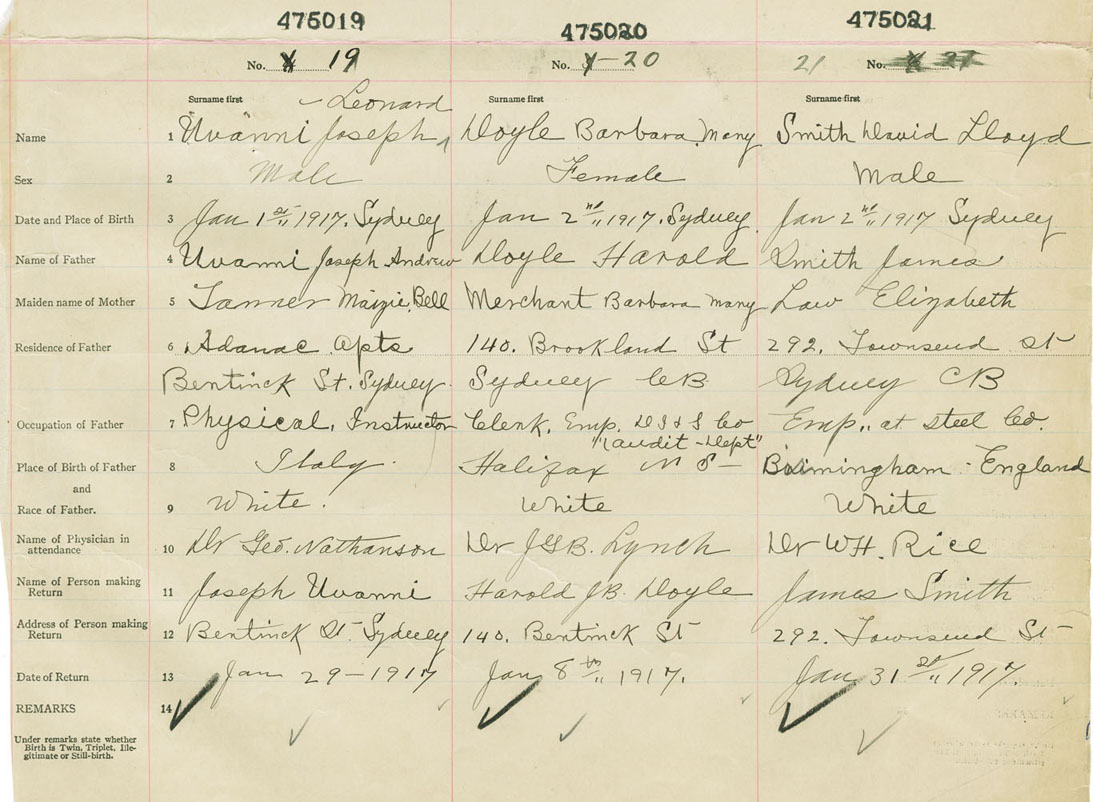 475019 475020 475021
No. 19 No. 20 21 No.
Surname first Surname first Surname first
Leonard
Name 1 Uvanni Joseph Doyle Barbara Mary Smith David Lloyd
Sex 2 Male Female Male
Date and Place of Birth 3 Jan 1st 1917. Sydney Jan 2nd 1917. Sydney Jan 2nd 1917 Sydney
Name of Father 4 Uvanni Joseph Andrew Doyle Harold Smith James
Maiden name of Mother 5 Tanner Maizie Bell Merchant Barbara Mary Law Elizabeth
Residence of Father 6 Adanac Apts 140. Brookland St 292. Townsend St
Bentinck St. Sydney. Sydney CB Sydney CB
Occupation of Father 7 Physical, Instructor Clerk, Emp. D I & S Co Emp,, at Steel Co.
"(audit - Dept"
Place of Birth of Father 8 Italy. Halifax N S Birmingham - England
and
Race of Father. 9 White. White White
Name of Physician in
attendance 10 Dr Geo. Nathanson Dr J G B. Lynch Dr WH. Rice
Name of Person making
Return 11 Joseph Uvanni Harold JB. Doyle James Smith
Address of Person making
Return 12 Bentinck St. Sydney 140. Bentinck St 292. Townsend St
Date of Return 13 Jan 29-1917 Jan 8th 1917. Jan 31st 1917.
REMARKS 14
Under remarks state whether
Birth is Twin, Triplet, Ille-
gitimate or Still-birth.